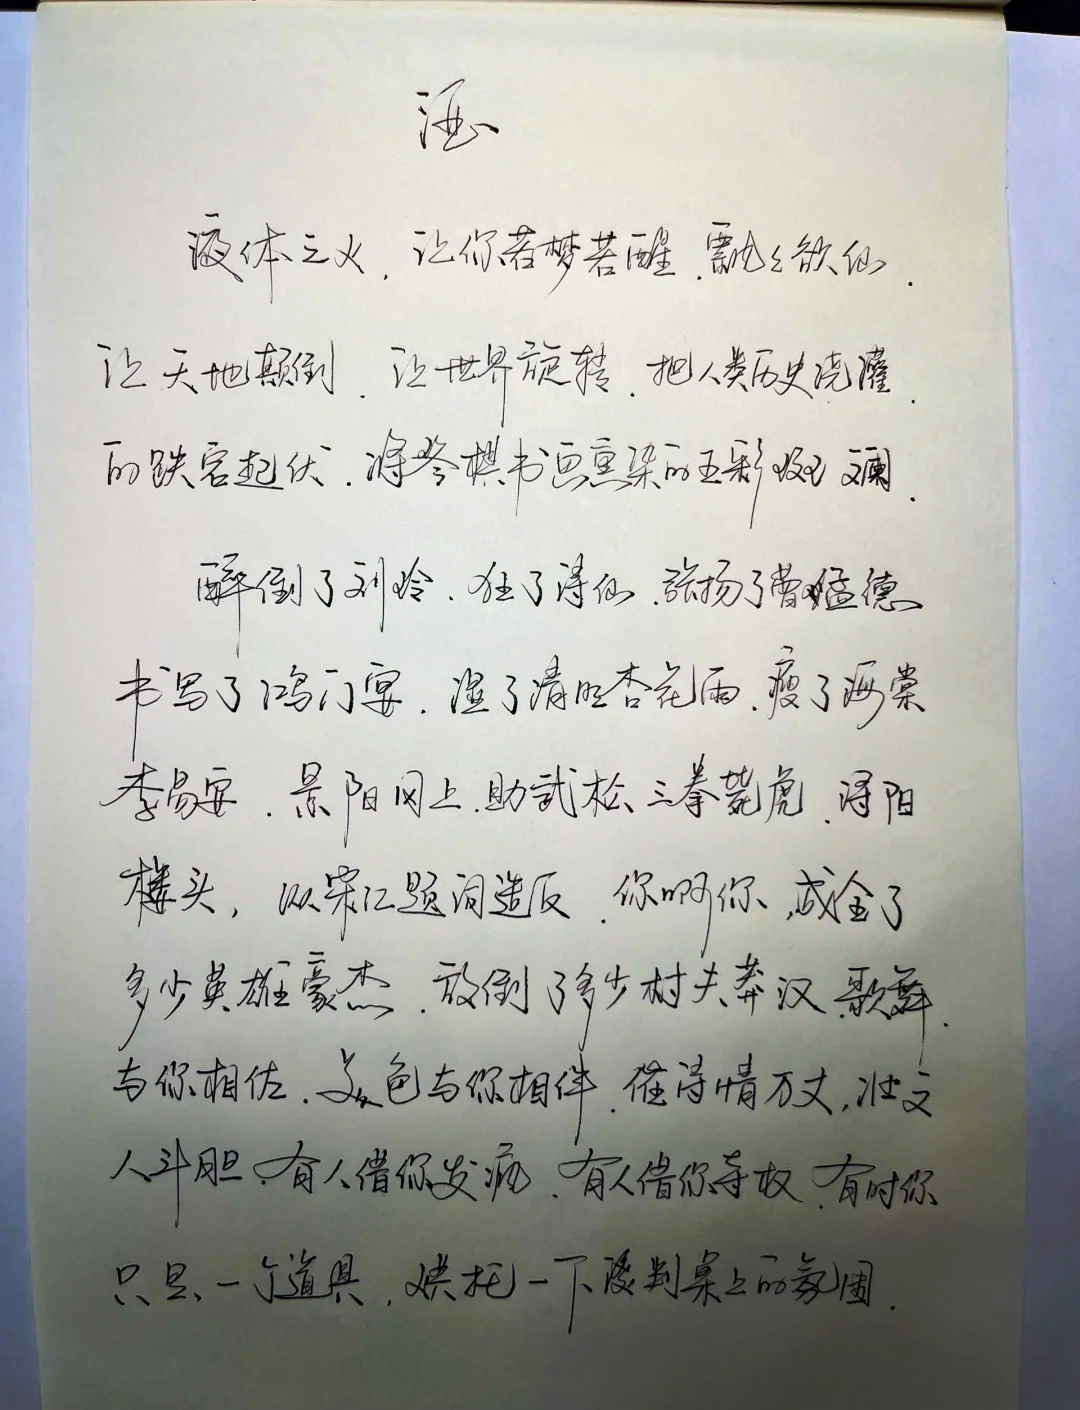 酒
液体之火,让你若梦若醒.飘飘欲仙.
让天地颠倒.让世界旋转.把人类历史浇灌
的跌宕起伏.将琴棋书画熏染的五彩斑斓.
醉倒了刘玲.狂了诗仙.张扬了曹孟德
书写了鸿门宴.湿了清明杏花雨.瘦了海棠
李易安.景阳冈上.助武松三拳毙虎.浔阳
楼头,从宋江题词造反.你啊你,成全了
多少英雄豪杰.放倒了多少村夫莽汉.歌舞
与你相佐.美色与你相伴.催诗情万丈,壮文
人斗胆.有人借你发疯.有人借你夺权.有时你
只是一个道具,烘托一下谈判桌上的氛围.